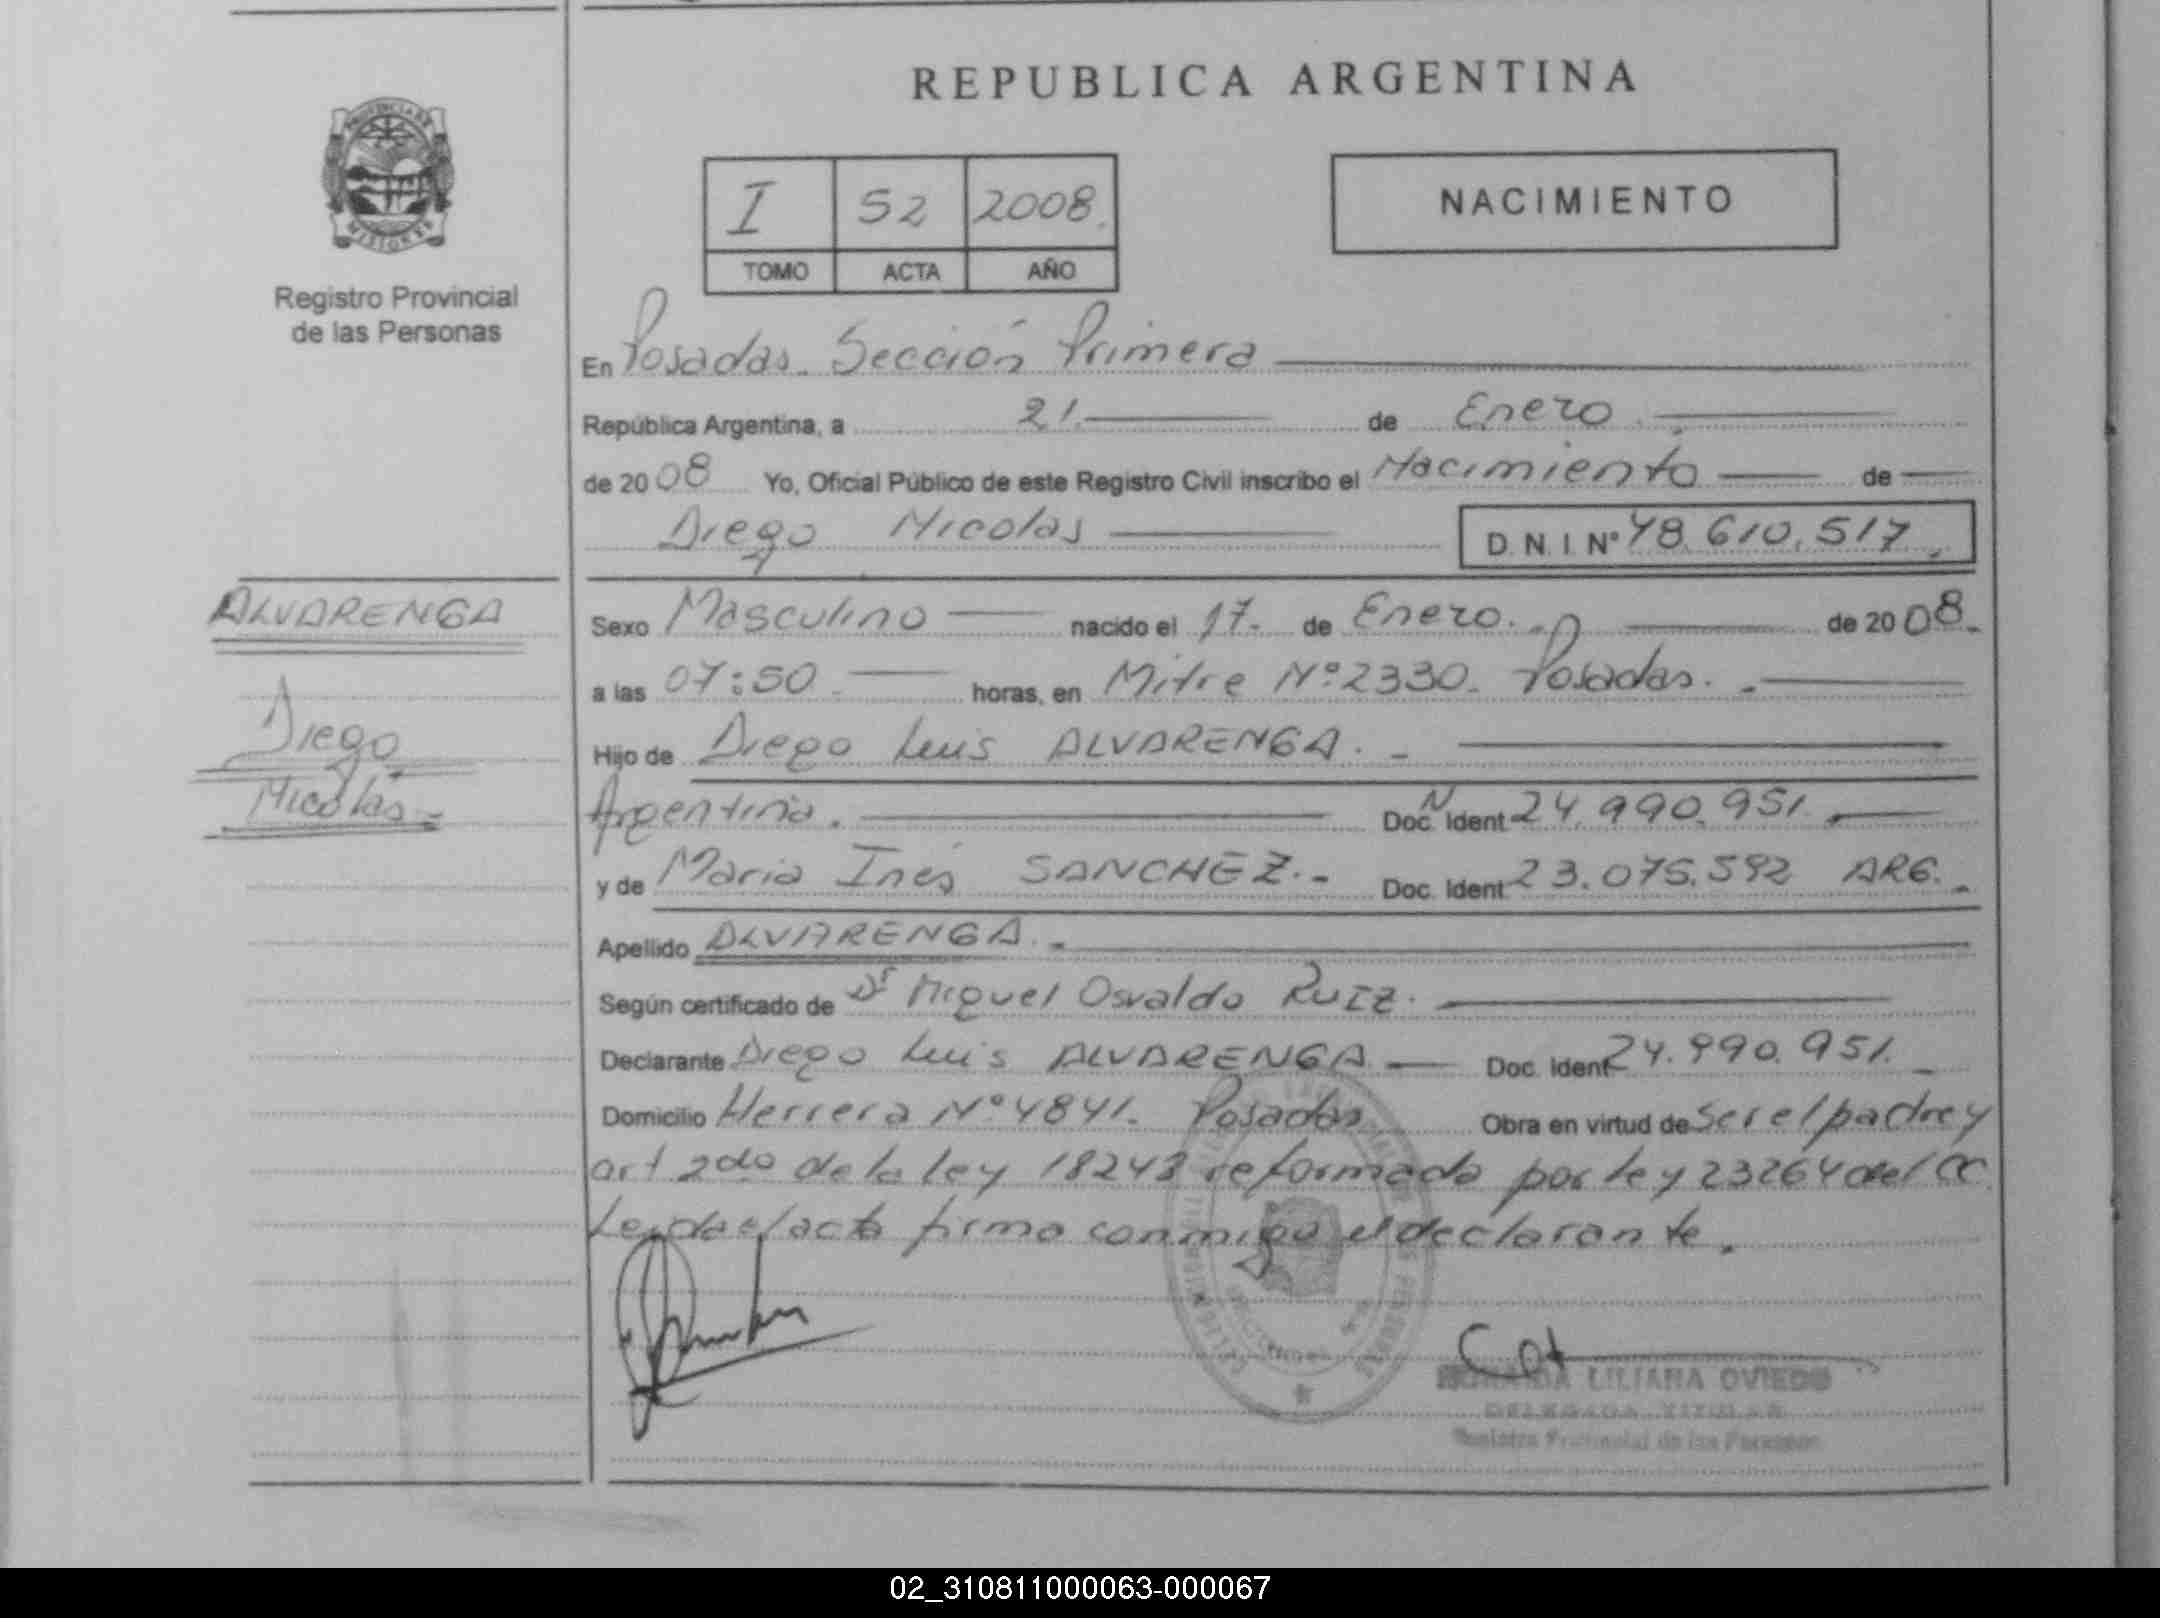 REPUBLICA ARGENTINA
PROVINCIA DE
MISIONES
Registro Provincial
de las Personas
I 52 2008.
TOMO ACTA AÑO
NACIMIENTO
En Posadas. Sección Primera
República Argentina, a 21. de Enero.
de 2008 Yo, Oficial Público de este Registro Civil inscribo el Nacimiento de
Diego Nicolas D.N.I. Nº 48.610.517.
ALVARENGA
Diego
Nicolás
Sexo Masculino nacido el 17. de Enero. de 2008.
a las 07:50 horas, en Mitre Nº 2330. Posadas.
Hijo de Diego Luis ALVARENGA.
Argentina. N Doc. Ident 24.990.951.
y de Maria Inés SANCHEZ. Doc. Ident. 23.075.592 ARG.
Apellido ALVARENGA.
Según certificado de Dr Miguel Osvaldo RUIZ.
Declarante Diego Luis ALVARENGA Doc. Ident 24.990.951.
Domicilio Herrera Nº 4841. Posadas Obra en virtud de ser el padre y
art 2do de la ley 18248 reformada por ley 23264 del CC.
Leida el acta firma conmigo el declarante.
LILIANA OVIEDO
DELEGADA TITULAR
Registro Provincial de las Personas
02_310811000063-000067